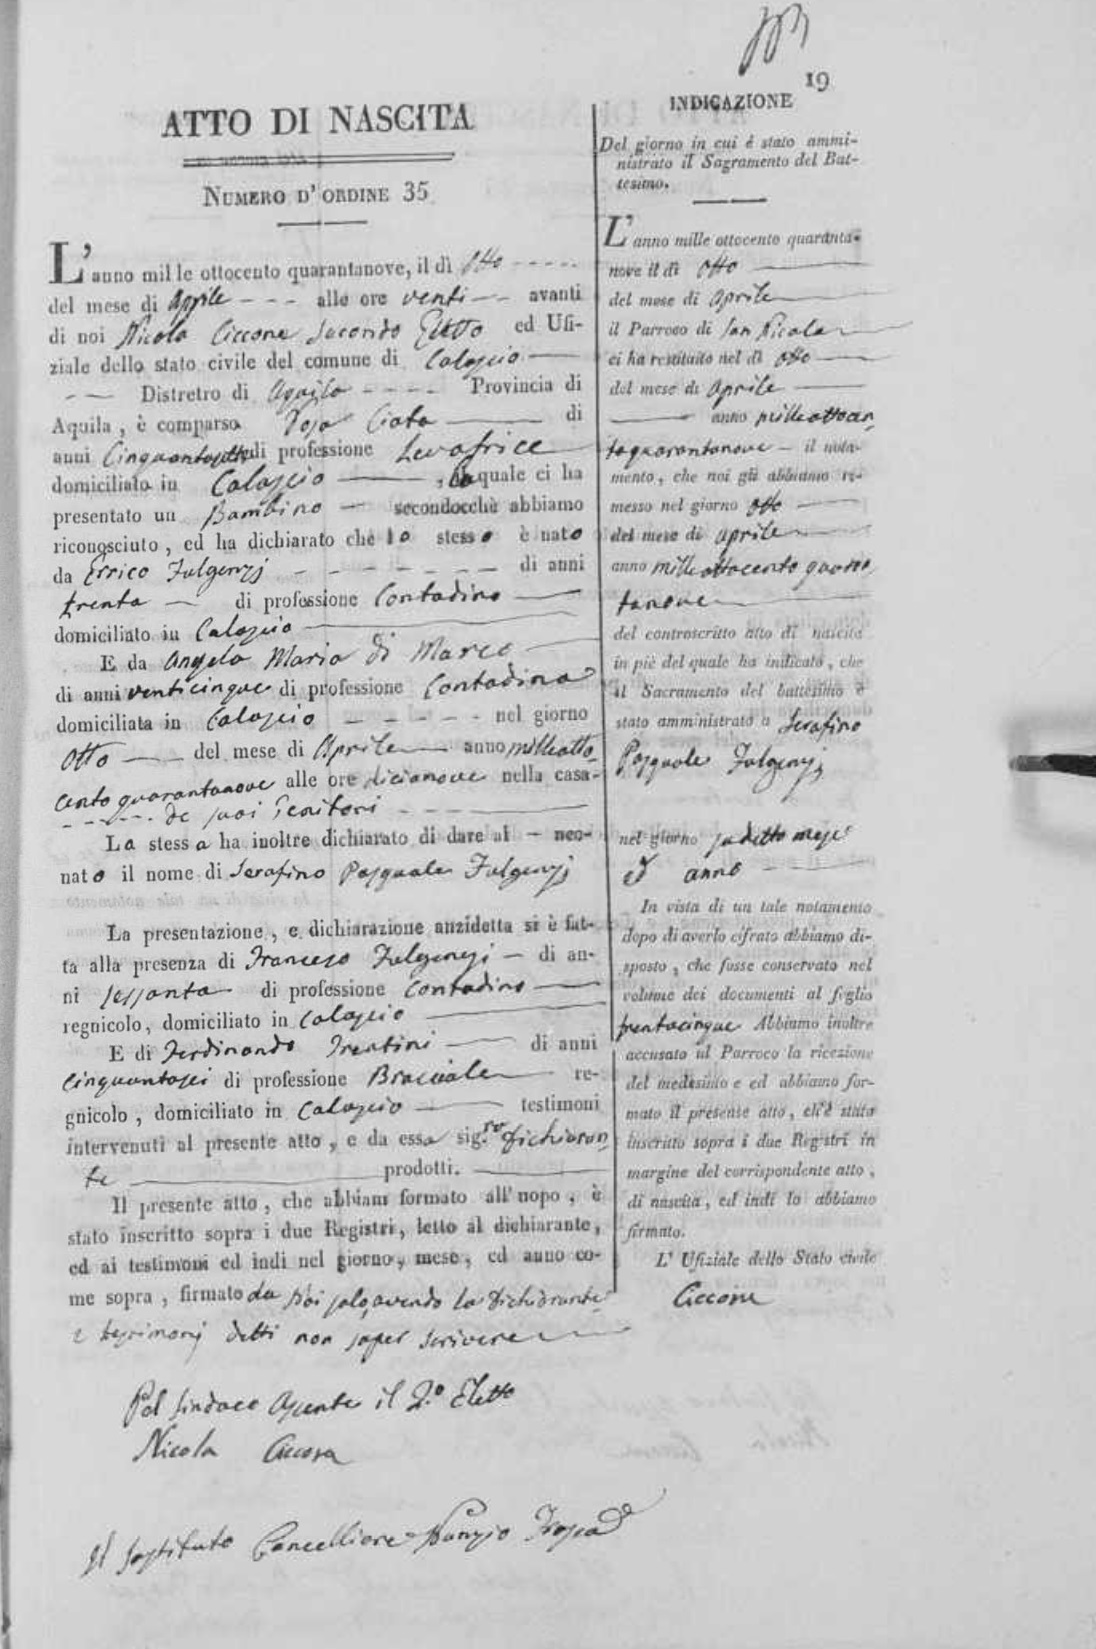 19
ATTO DI NASCITA
NUMERO D' ORDINE 35
L'anno mille ottocento quarantanove, il dì Otto
del mese di Aprile alle ore venti avanti
di noi Nicola Ciccone Secondo Eletto ed Ufi-
ziale dello stato civile del comune di Calascio
Distretro di Aquila Provincia di
Aquila, è comparsa Rosa di
anni Cinquantotto di professione Levatrice
domiciliato in Calascio, la quale ci ha
presentato un Bambino secondocchè abbiamo
riconosciuto, ed ha dichiarato che lo stesso è nato
da Errico Fulgenzj di anni
trenta di professione Contadino
domiciliato in Calascio
E da Angela Maria di Marco
di anni venticinque di professione Contadina
domiciliata in Calascio nel giorno
Otto del mese di Aprile anno milleotto
cento quarantanove alle ore dicianove nella casa
de suoi Genitori
La stessa ha inoltre dichiarato di dare al neo-
nato il nome di Serafino Pasquale Fulgenzj
La presentazione, e dichiarazione anzidetta si è fat-
ta alla presenza di Francesco Fulgenzj di an-
ni sessanta di professione Contadino
regnicolo, domiciliato in Calascio
E di Ferdinando Trentini di anni
cinquantasei di professione Bracciale re-
gnicolo, domiciliato in Calascio testimoni
intervenuti al presente atto, e da essa sig.ra dichiaran
te prodotti.
Il presente atto, che abbiam formato all'uopo, è
stato inscritto sopra i due Registri, letto al dichiarante,
ed ai testimoni ed indi nel giorno, mese, ed anno co-
me sopra, firmato da Noi solo, avendo la Dichiarante
e testimonj detti non saper scrivere
Pel Sindaco Assente il 2.º Eletto
Nicola Ciccone
Il Sostituto Cancelliere Nunzio
INDICAZIONE
Del giorno in cui é stato ammi-
nistrato il Sagramento del Bat-
tesimo.
L'anno mille ottocento quaranta-
nove il dì Otto
del mese di Aprile
il Parroco di San Nicola
ci ha restituito nel dì otto
del mese di Aprile
anno milleottocen
toquarantanove il nota-
mento, che noi gli abbiamo ri-
messo nel giorno otto
del mese di Aprile
anno mille ottocento quaran
tanove
del controscritto atto di nascita
in piè del quale ha indicato, che
il Sacramento del battesimo è
stato amministrato a Serafino
Pasquale Fulgenzj
nel giorno sudetto mese
ed anno
In vista di un tale notamento
dopo di averlo cifrato abbiamo di-
sposto, che fosse conservato nel
volume dei documenti al foglio
trentacinque Abbiamo inoltre
accusato al Parroco la ricezione
del medesimo e ed abbiamo for-
mato il presente atto, ch'è stato
inscritto sopra i due Registri in
margine del corrispondente atto,
di nascita, ed indi lo abbiamo
firmato.
L' Ufiziale dello Stato civile
Ciccone